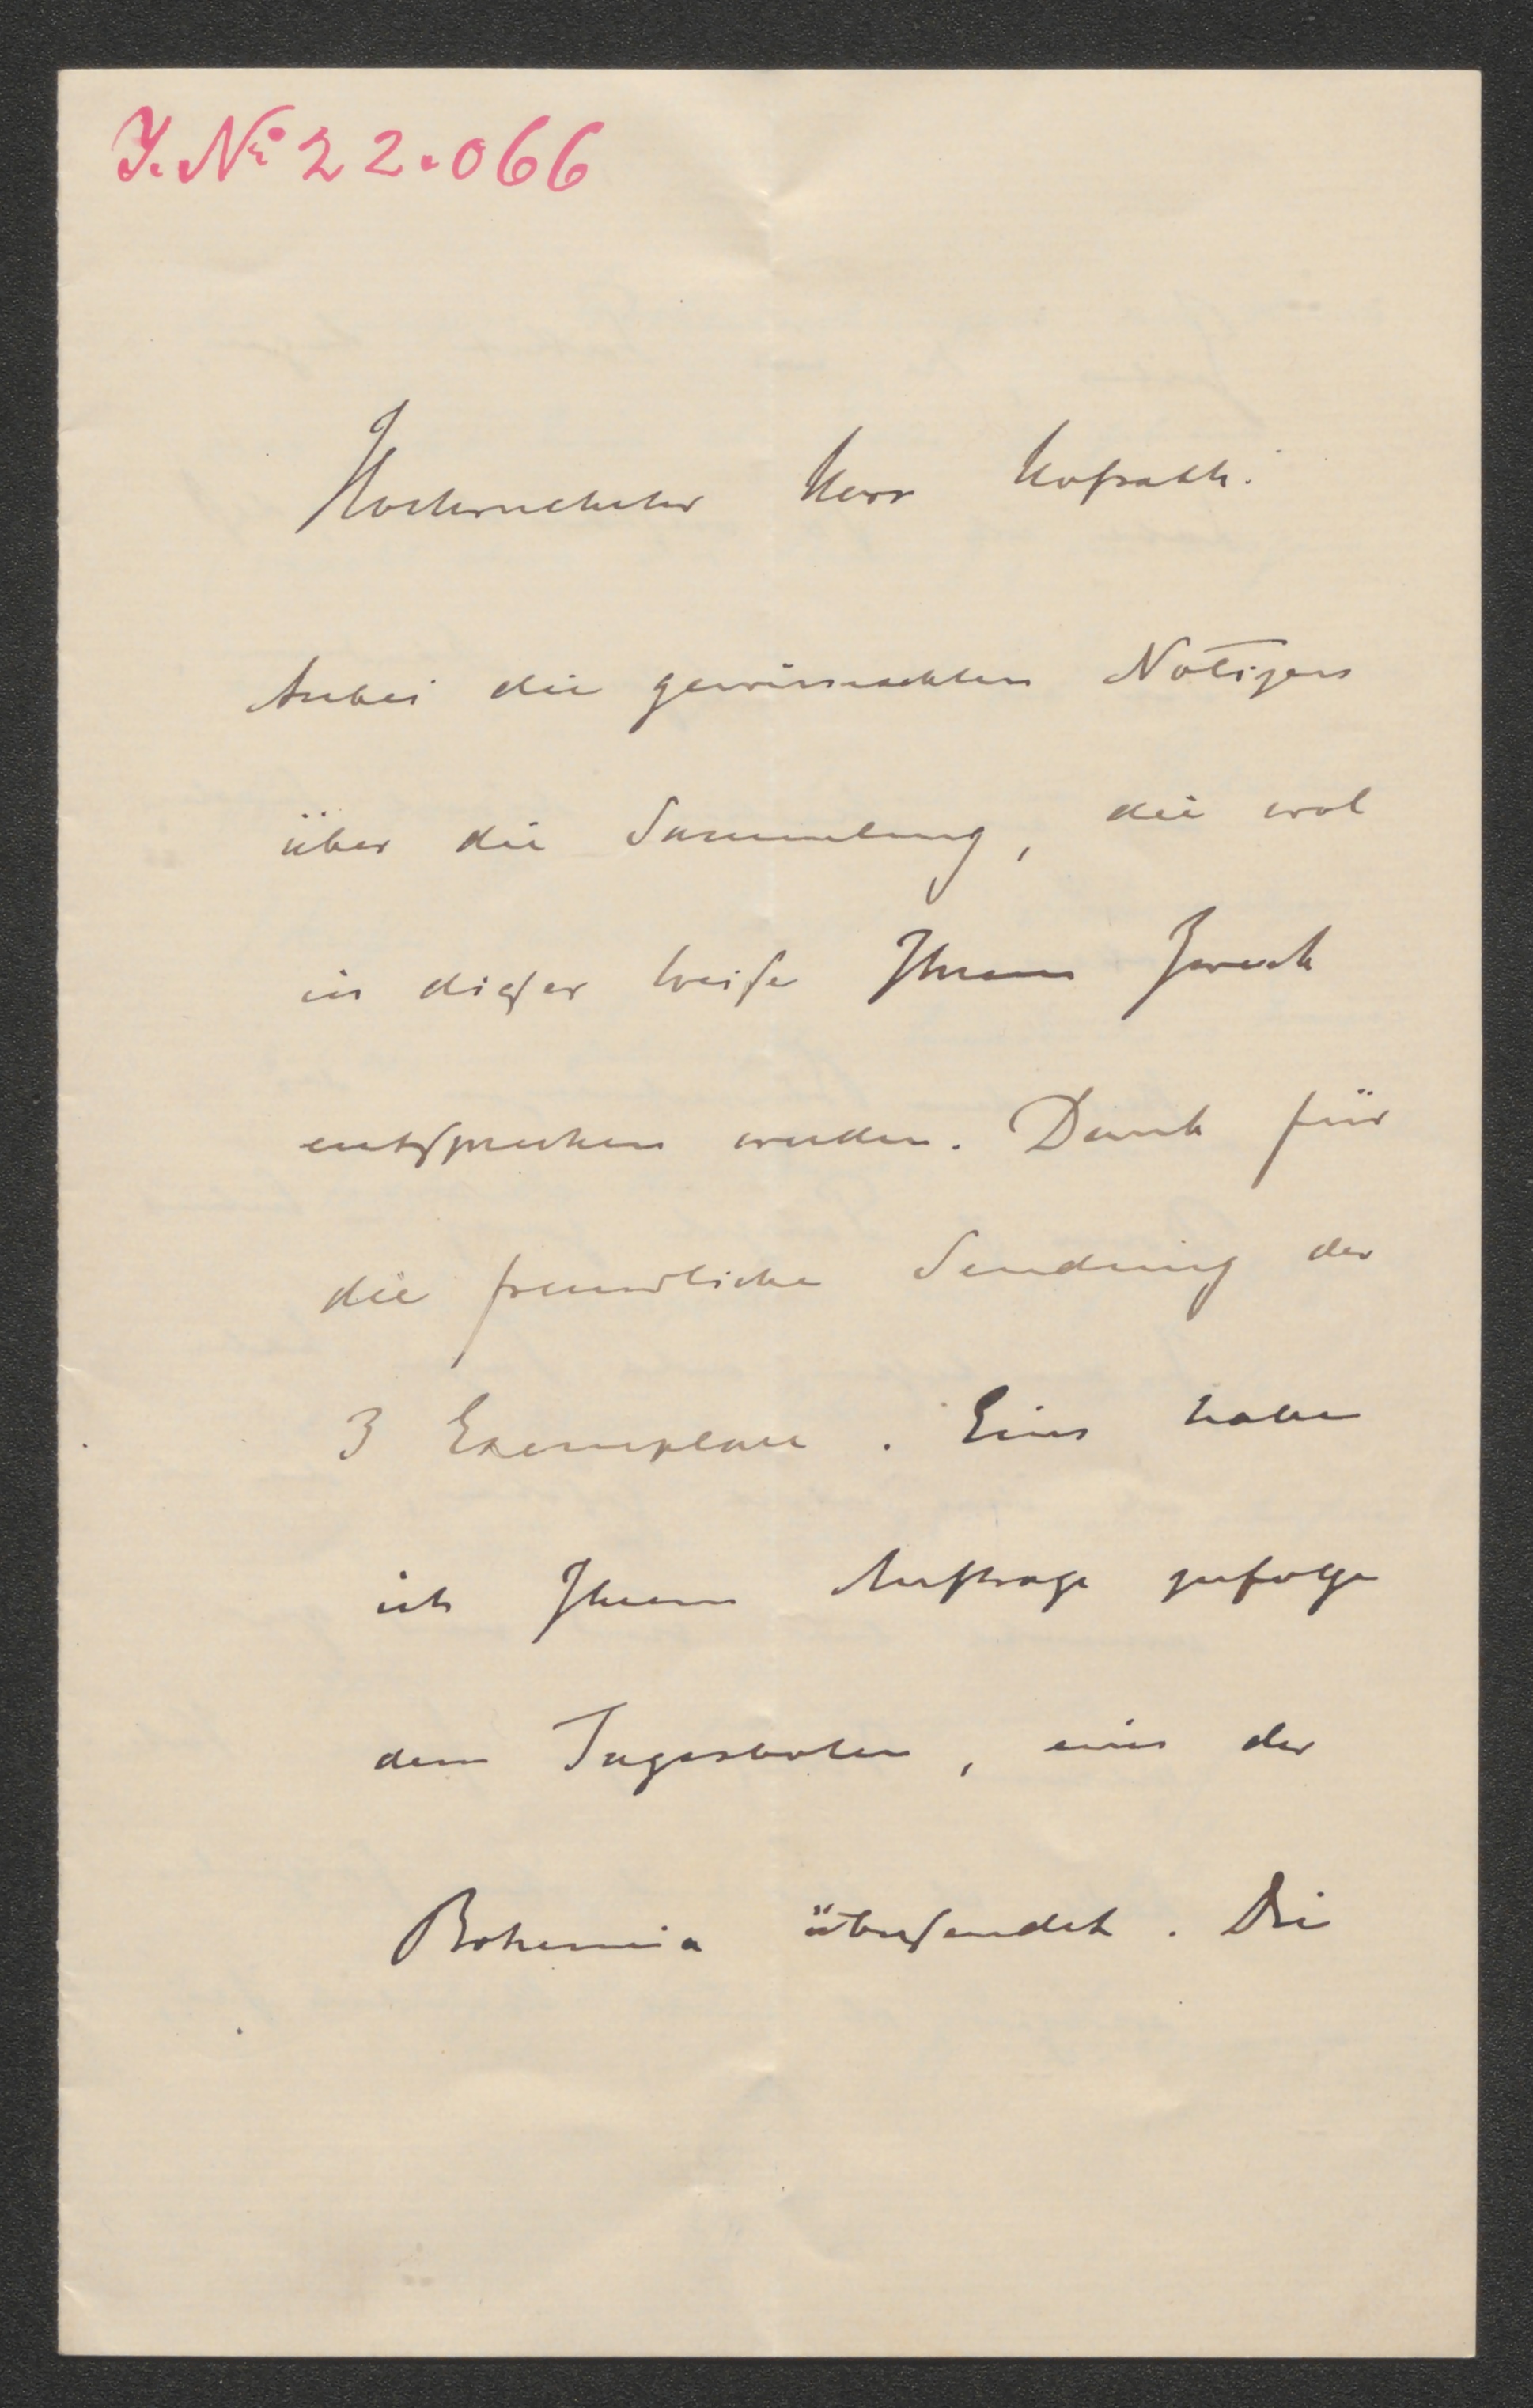 J. № 22.066
Hochverehrter Herr Hofrath!
Anbei die gewünschten Notizen
über die Sammlung, die wol
in dieser Weise Ihrem Zweck
entsprechen werden. Dank für
die freundliche Sendung der
3 Exemplare. Eins habe
ich Ihrem Auftrage zufolge
dem Tagesboten, eins der
Bohemia übersendet. Die